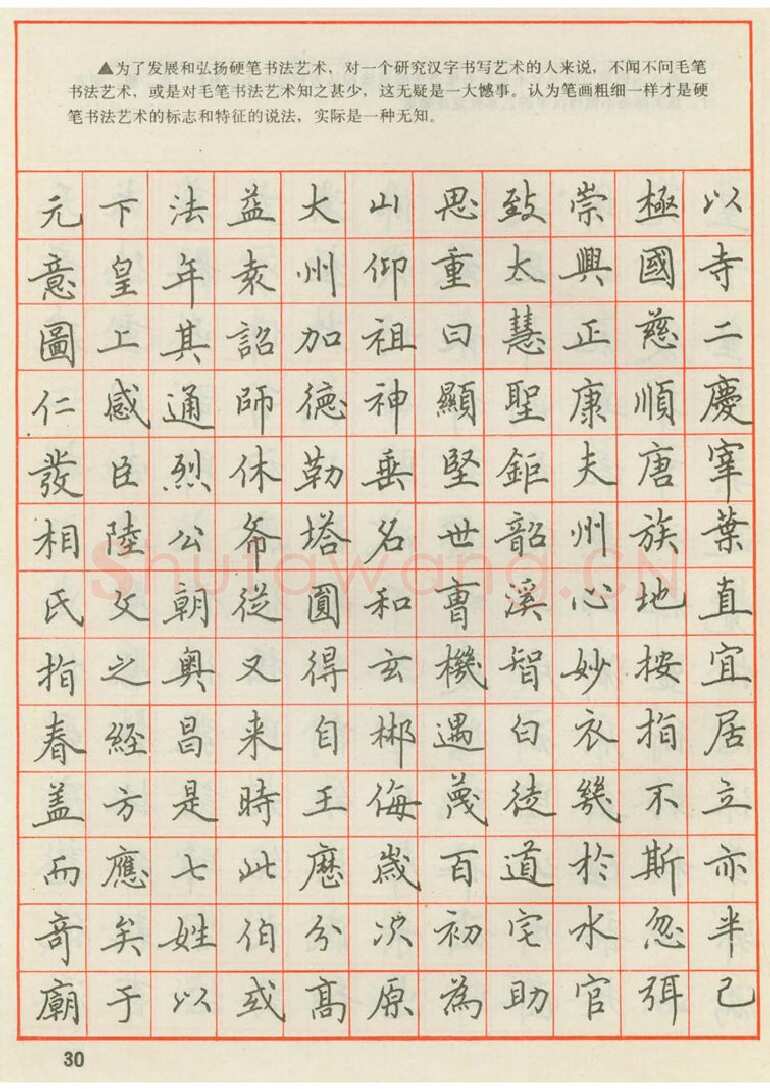 ▲为了发展和弘扬硬笔书法艺术，对一个研究汉字书写艺术的人来说，不闻不问毛笔
书法艺术，或是对毛笔书法艺术知之甚少，这无疑是一大憾事。认为笔画粗细一样才是硬
笔书法艺术的标志和特征的说法，实际是一种无知。
以寺二慶宰葉直宜居立亦半己
極國慈順唐族地按指不斯忽弭
崇興正康夫州心妙衣幾於水官
致太慧聖鉅韶溪智白徒道宅助
思重曰顯堅世曹機遇蔑百初為
山仰祖神垂名和玄郴侮歲次原
大州加德勒塔圓得自王曆分高
益袁詔師休從又来時此伯或
法年其通烈公朝奥昌是七姓以
下皇上感臣陸父之經方應矣于
元意圖仁發相氏指春盖而奇廟
30
Shufawang.CN